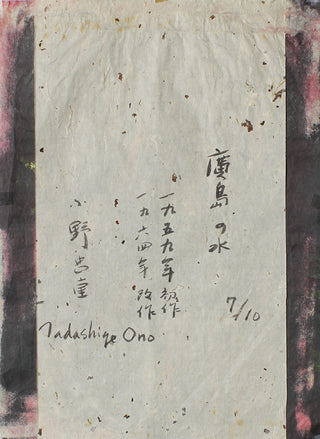 廣島の水
7/10
一九五九年初作
一九六四年改作
小野忠重
Tadashige Ono